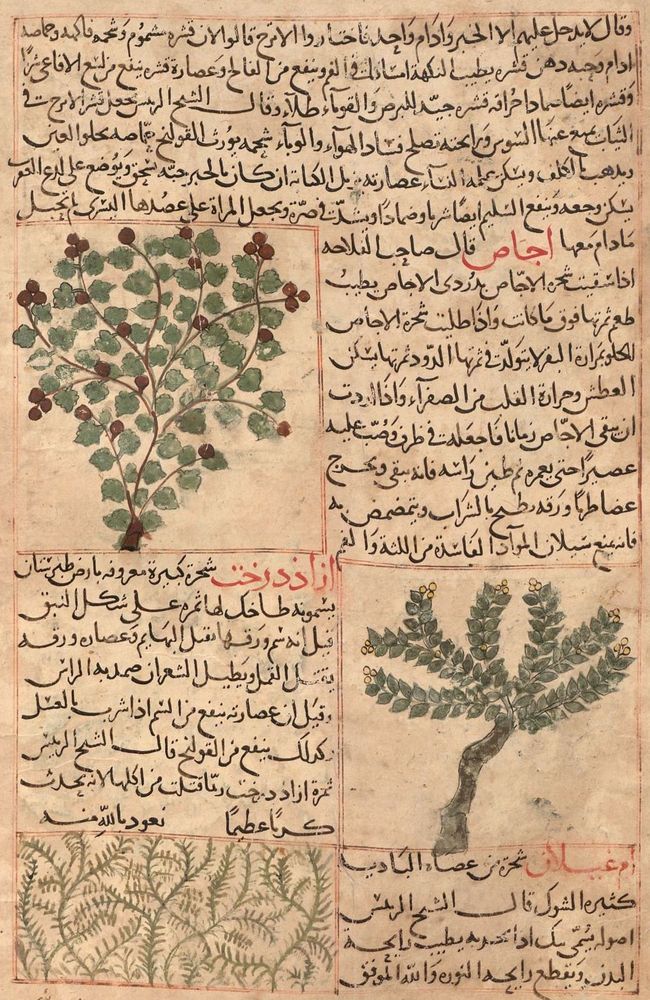 وقال لا يدخل عليهم الا الخبز وادام واحد فاختاروا الاترج قالوا لان قشره مشموم وشحمه فاكهه وحماضه
ادام وحبه دهن قشره يطيب النكهة امساكا في الفم وينفع من الفالج وعصارة قشره ينفع من لسع الافاعي شربا
وقشره ايضا ضمادا حراقه قشره جيد للبرص والقوباء طلاء وقال الشيخ الرئيس يجعل قشر الاترج في
الثياب يمنع عنها السوس ورائحته تصلح فساد الهواء والوباء شحمه يورث القولنج حماضه يجلو العين
ويذهب بالكلف ويسكن غلمة النساء عصارته يزيل الكتابة ان كان بالحبر حبه يسحق ويوضع على لدغ العقرب
يسكن وجعه وينفع السليم ايضا شربا وضمادا ويشد في صرة ويجعل المراة على عضدها اليسرى لم تحبل
ما دام معها اجاص قال صاحب الفلاحه
اذا سقيت شجرة الاجاص بدردي الاجاص يطيب
طعم ثمرتها فوق ما كانت واذا طليت شجرة الاجاص
بمرارة البقر لا يتولد في ثمرتها الدود ثمرتها يسكن
العطش وحرارة القلب من الصفراء واذا اردت
ان يبقى الاجاص زمانا فاجعله في ظرف وصب عليه
عصيرا حتى يغمره ثم طين راسه فانه يبقى ويخرج
غضا طريا ورقه يطبخ بالشراب ويتمضمض به
فانه يمنع سيلان المواد الفاسدة من اللثة والفم
ازاددرخت شجرة كبيرة معروفه بارض طبرستان
يسمونه طاحك لها ثمره على شكل النبق
قيل انه سم ورقها يقتل البهايم وعصاره ورقه
يقتل القمل ويطيل الشعر ان ضمد به الراس
وقيل ان عصارته ينفع من السم اذا شرب بالعسل
وكذلك ينفع من القولنج قال الشيخ الرئيس
ثمرة ازاددرخت ربما قتلت من اكلها لانه يحدث
كربا عظيما نعوذ بالله منه
ام غيلان شجرة من عضاه البادية
كثيرة الشوك قال الشيخ الرئيس
اصوله يسمى بنك اذا تبخر به يطيب رايحة
البدن ويقطع رايحة النوره والله الموفق